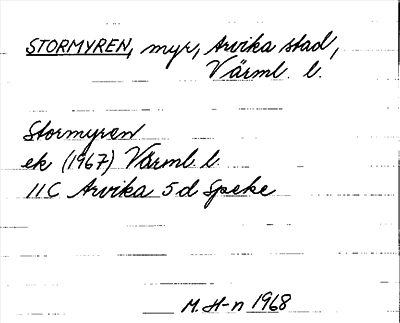 STORMYREN, myr, Arvika stad,
Värml. l.
Stormyren
ek (1967) Värml l.
11C Arvika 5d Speke
M. H-n 1968